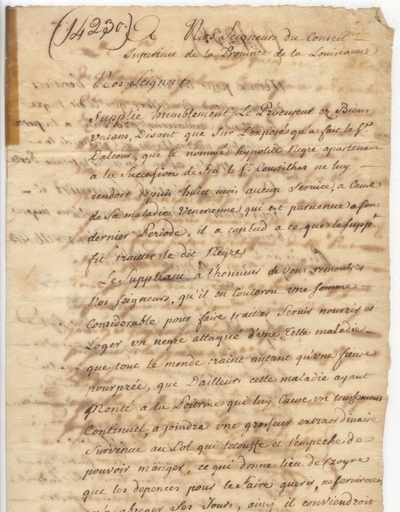 (14230) A Nos Seigneurs du Conseil
Superieur de la Province de la Louisianne
Nos Seigneurs
Supplie humblement Le Procureur Biens
vacans, Disant que Sur L'exposé qu'a fait le Sr.
Dalcour, que le nommé hypolite Negre apartenant
a la Succession de feu le Sr.
rendoit depuis huit mois aucun Service, a Cause
de Sa maladie Venerienne qui est parvenue a Son
dernier Periode, il a conclud a ce que le Suppt.
fit traitter le dit Negre
Le Suppliant a l'honneur de vous remontrer
Nos Seigneurs, qu'il en Couteroit une Somme
Considerable pour faire traitter Servir nourrir et
Loger un negre attaqué d'une Telle maladie
que tout le monde craint autant qu'une fievre
pourprée, que D'ailleurs cette maladie ayant
Monté a la Poitrine qui luy Cause un
Continuel, a joindre une grosseur extraordinaire
Survenue au Col qui l'etouffe et l'empeche de
pouvoir manger, ce qui donne lieu de Croyre
que les depences pour le faire guerir, ne
abreger Ses Jours, ainsi il conviendroit